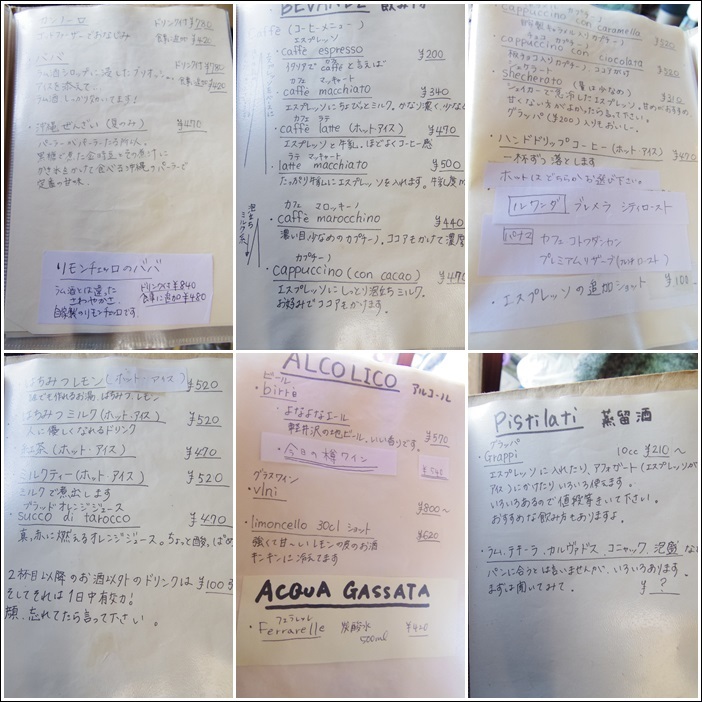 ドリンク付 ¥780
食事に追加 ¥420
・ババ
ドリンク付 ¥780
アイスを添えて。
沖縄ぜんざい(夏のみ) ¥470
定番の甘味。
リモンチェルロのババ
ラム酒とは違った
さわやかさ。
自家製のリモンチェルロです。
ドリンク付 ¥840
食事に追加 ¥480
BEVANDE
Caffè (コーヒーメニュー)
エスプレッソ
・caffè espresso ¥200
イタリアで caffè と言えば
カフェ マッキャート
・caffè macchiato ¥340
エスプレッソにちょびっとミルク。かなり濃く、少なく
カフェ ラテ
・caffè latte (ホット・アイス) ¥470
エスプレッソと牛乳。ほどよくコーヒー感
ラテ マッキャート
・latte macchiato ¥500
たっぷり牛乳にエスプレッソを入れます。牛乳度
カフェ マロッキーノ
・caffè marocchino ¥440
濃い目、少なめのカプチーノ。ココアもかけて濃厚
カプチーノ
・cappuccino (con cacao) ¥470
エスプレッソにしっとり泡立ちミルク。
お好みでココアもかけます。
cappuccino con caramella ¥520
cappuccino con cioccolata ¥520
シェケラート
shecherato (夏は少なめ) ¥310
甘くない方がよかったら言って下さい。
グラッパ (¥200) 入りもおいしー。
・ハンドドリップコーヒー (ホット・アイス) ¥470
一杯ずつ落とします
ホートしス どちらかお選び下さい。
ルワンダ ブレメラ シティロースト
パナマ カフェ コトワダンカン
プレミアムリザーブ(フレンチロースト)
・エスプレッソの追加ショット ¥100
はちみつレモン (ホット・アイス) ¥520
誰でも作れるお湯、はちみつ、レモン
はちみつミルク (ホット・アイス) ¥520
人に優しくなれるドリンク
紅茶 (ホット・アイス) ¥470
ミルクティー (ホット・アイス) ¥520
ミルクで煮出します
ブラッドオレンジジュース
・succo di tarocco ¥470
真っ赤に燃えるオレンジジュース。ちょっと酸っぱめ
2杯目以降のお酒以外のドリンクは ¥100
そしてそれは1日中有効!
顔、忘れてたら言って下さい。
ALCOLICO アルコール
ビール
・birre
・よなよなエール ¥570
軽井沢の地ビール。いい香りです。
・今日の樽ワイン ¥540
グラスワイン
・vini ¥800〜
・limoncello 30cl ショット ¥620
強くて甘〜いレモンの皮のお酒
キンキンに冷えてます
ACQUA GASSATA
フェラレッレ
・Ferrarelle 炭酸水 500ml ¥420
Pistilati 蒸留酒
グラッパ
・Grappi 10cc ¥210〜
エスプレッソに入れたり、アフォガート (エスプレッソが
アイス) にかけたりいろいろ使えます。
いろいろあるので値段等きいて下さい。
おすすめな飲み方もありますよ。
・ラム、テキーラ、カルヴァドス、コニャック、泡盛 な
パンに合うとは言いませんが、いろいろあります。
まずは聞いてみて。 ¥ ?